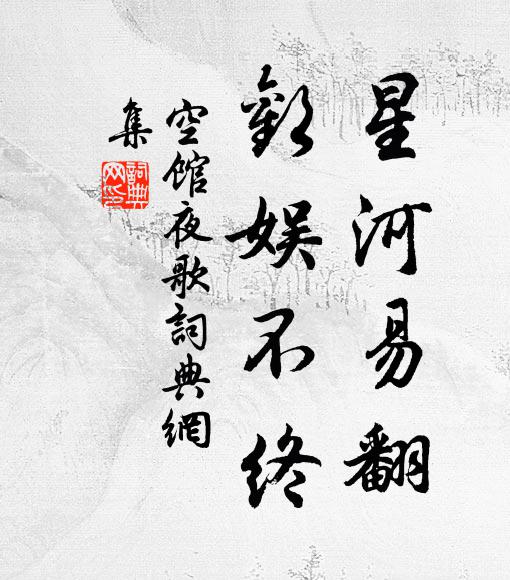 星河易翻
歡娛不終
空館夜歌詞典網
集
詞典
网氏